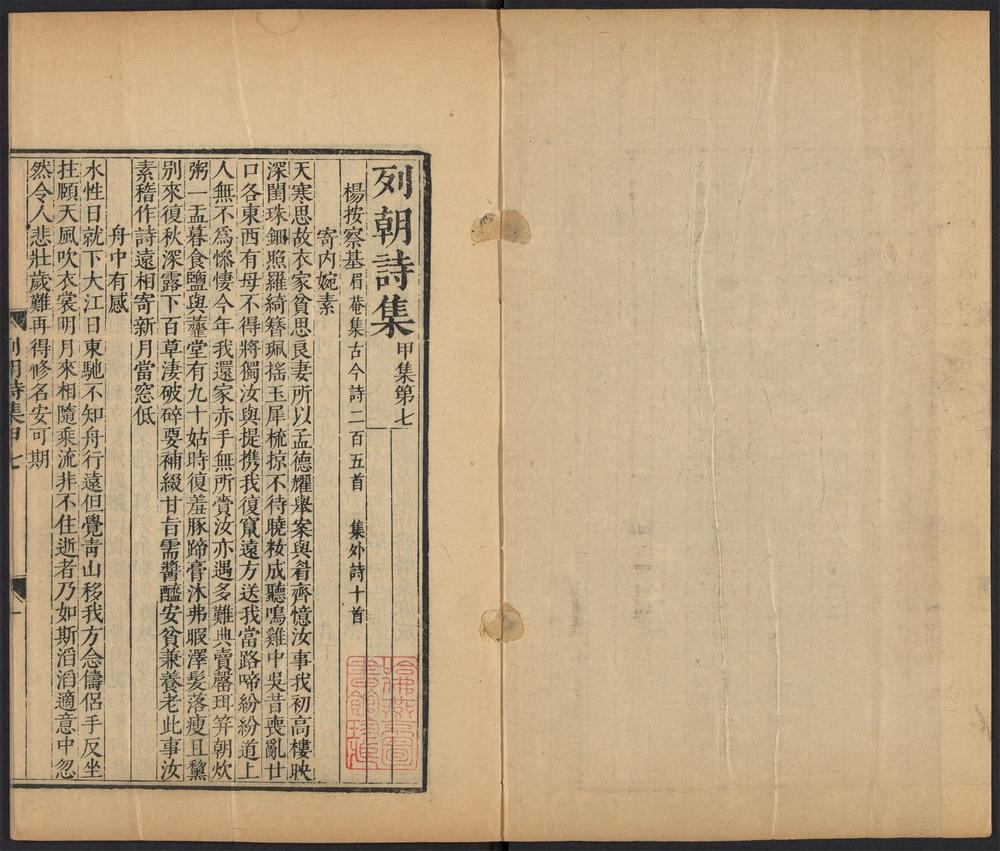 列朝詩集甲集第七
楊按察基眉菴集古今詩二百五首 集外詩十首
寄内婉素
天寒思故衣家貧思良妻所以孟德耀舉案與眉齊憶汝事我初高樓映
深閨珠鈿照羅綺簪珮搖玉犀梳掠不待曉妝成聽鳴雞中吳昔喪亂廿
口各東西有母不得將獨汝與提携我復竄遠方送我當路啼紛紛道上
人無不爲慘悽今年我還家赤手無所賫汝亦遇多難典賣罄珥笄朝炊
粥一盂暮食鹽與虀堂有九十姑時復羞豚蹄膏沐弗暇澤髮落瘦且黧
别來復秋深露下百草淒破碎要補綴甘旨需醬醯安貧兼養老此事汝
素稽作詩遠相寄新月當窓低
舟中有感
水性日就下大江日東馳不知舟行遠但覺靑山移我方念儔侣手反坐
拄願天風吹衣裳明月來相隨乘流非不住逝者乃如斯滔滔適意中忽
然令人悲壯歲難再得修名安可期
列朝詩集甲七
一
哈佛燕京圖書館珍藏